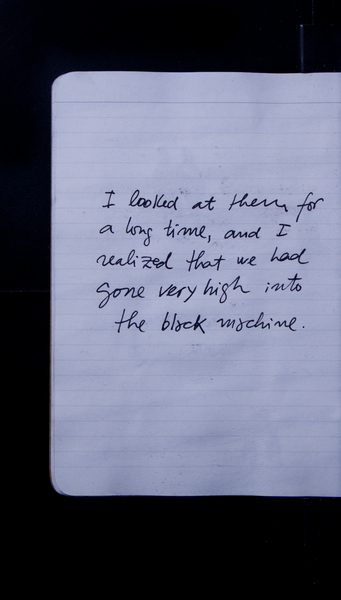 I looked at them, for
a long time, and I
realized that we had
gone very high into
the black machine.